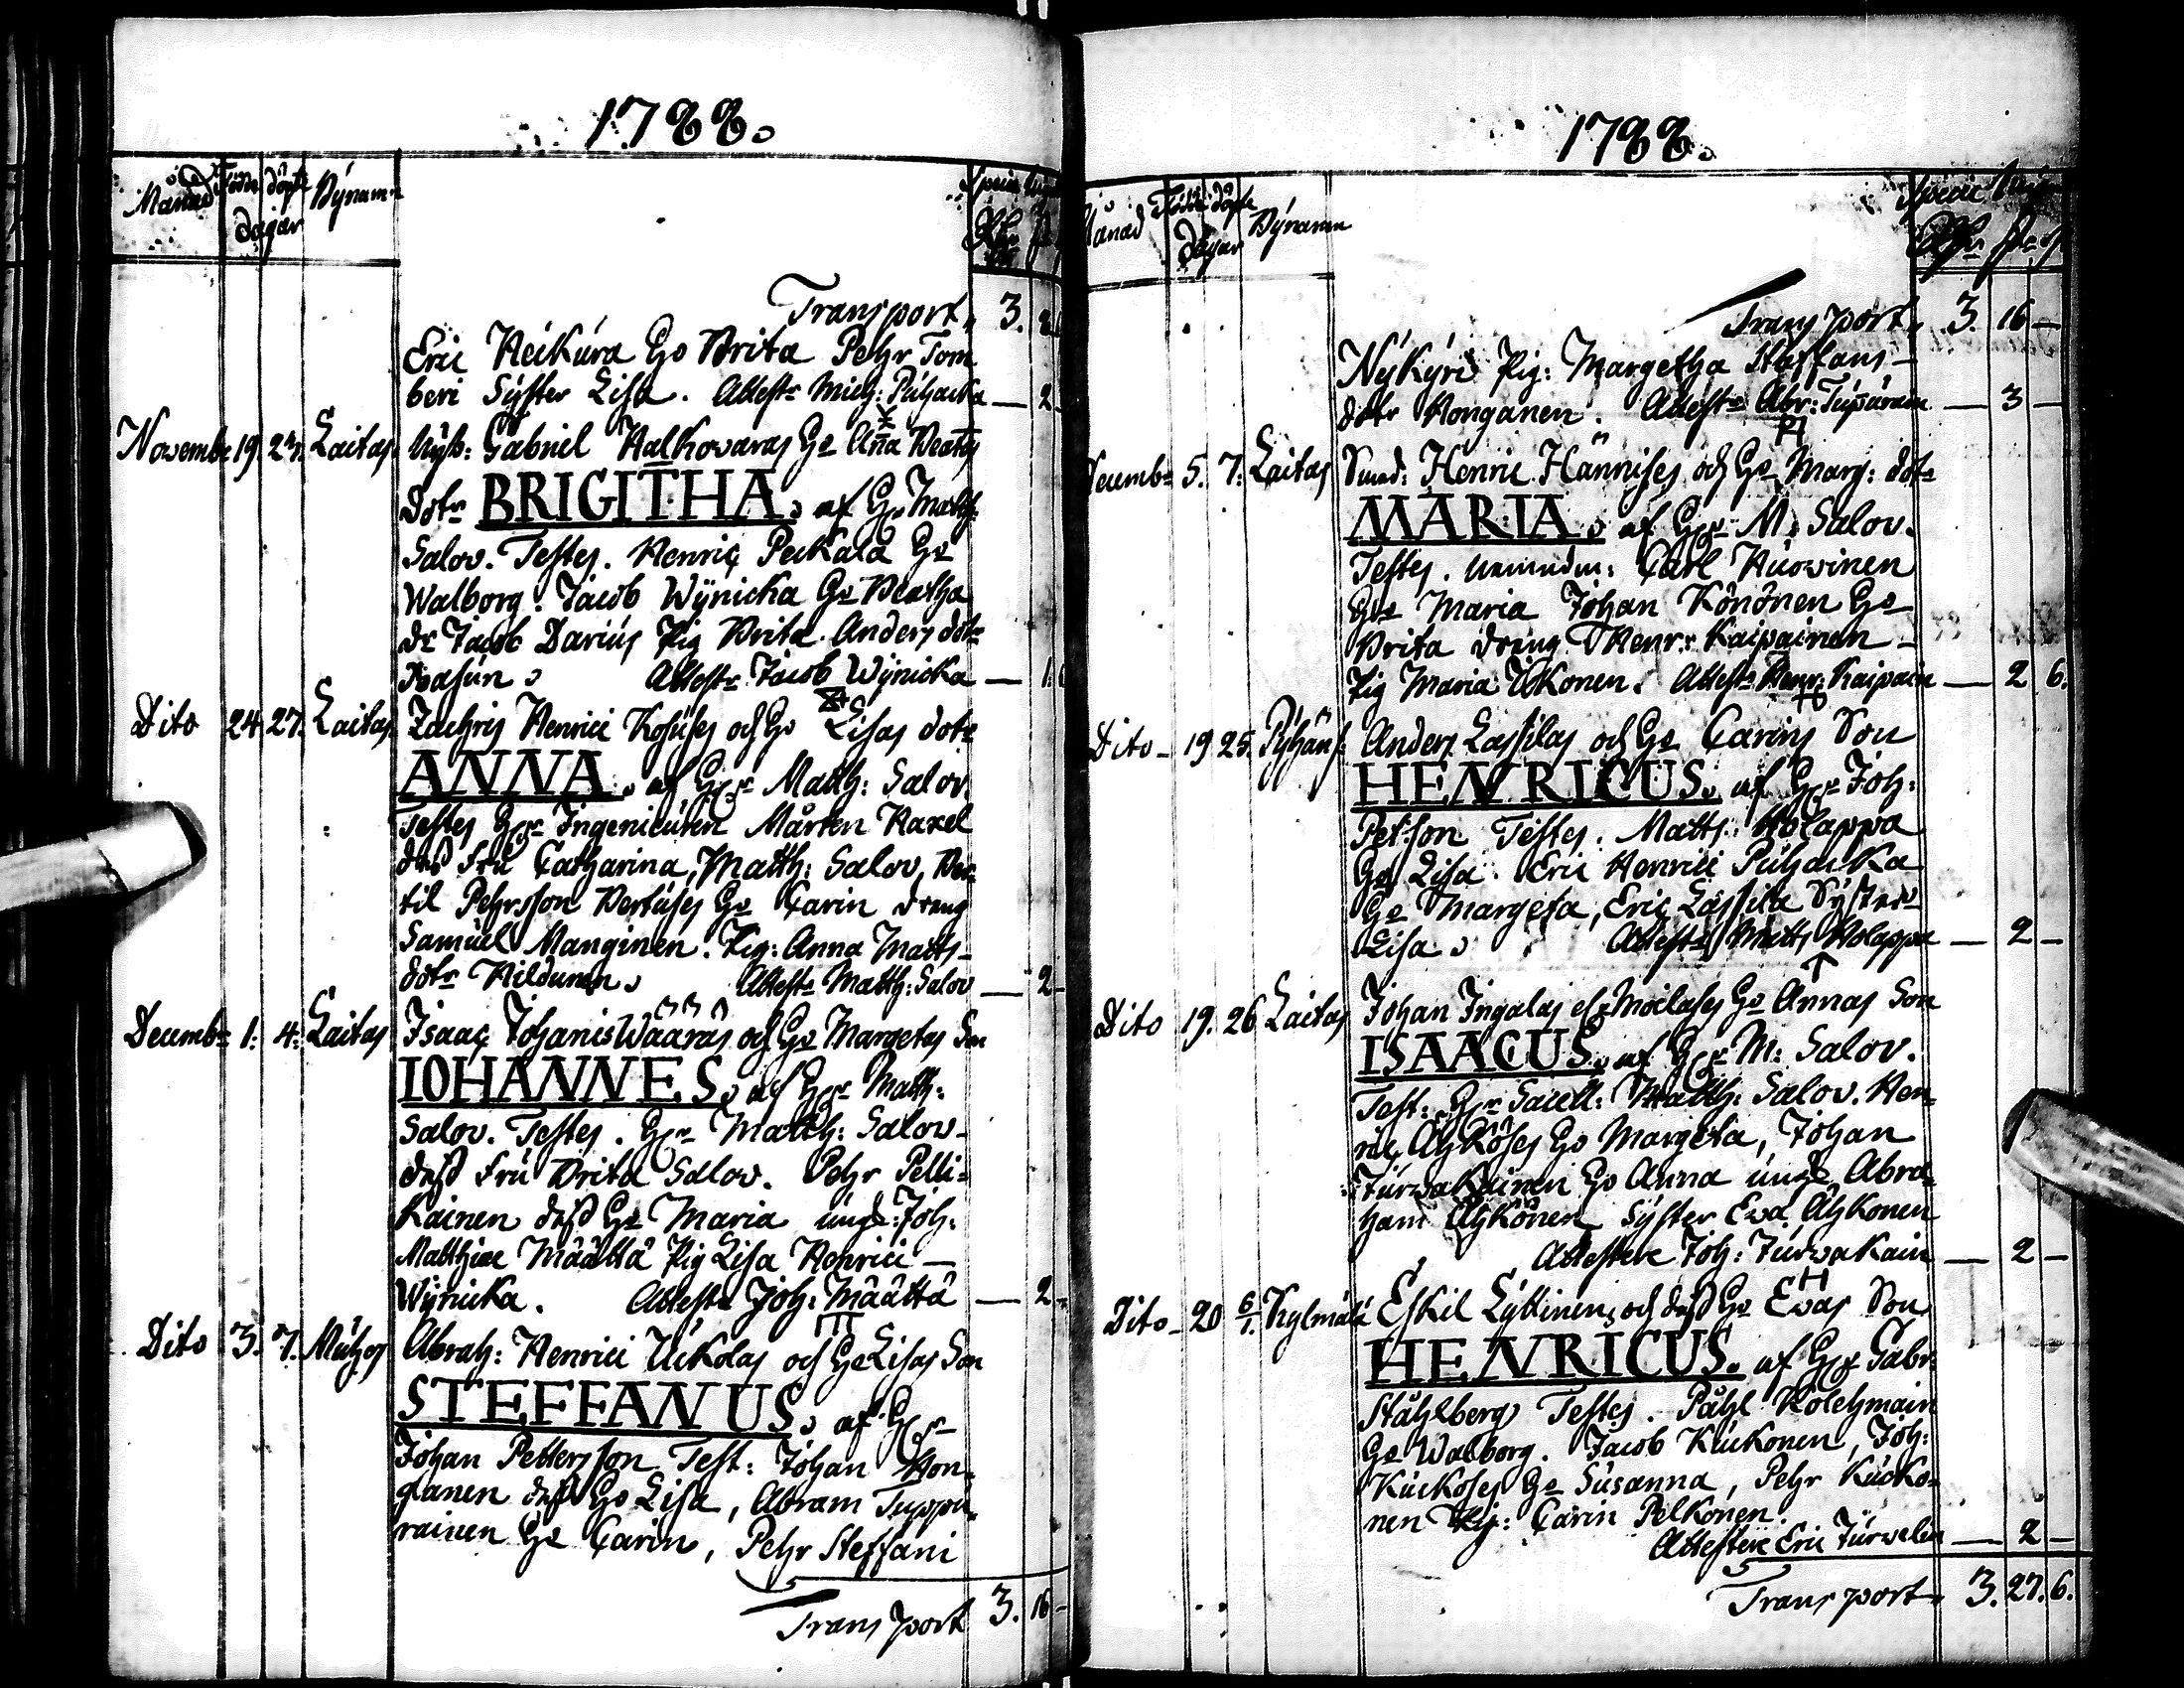 1788.
Månad Födde döpte Bÿnamn
dagar
Transport, 3.
Eric Heikura Ho Brita Pehr Tom
beri Sÿster Lisa. Attestr Mich: Puhacka — 2
Novembr 19. 23. Laitas. Nÿb: Gabriel Halkowaras Ho Aña Beatæ
dotr BRIGITHA. af Hr Matth:
Salov. Testes. Henric Peckala Ho
Walborg. Jacob Wÿnicka Ho Beatha
dr Jacob Darius Pig Brita Anders dotr
Attestr Jacob Wÿnicka — 1.
Dito 24. 27. Laitas. Zachris Henrici Kosuses och Ho Lisas dotr
ANNA. af Hr Matth: Salov.
Testes Hr Ingenieuren Mårten Haxel
dess Fru Catharina, Matth: Salov, Ber-
til Pehrsson Bertuses Ho Carin dreng
Samuel Manginen. Pig: Anna Matts-
dotr Hildunen. Attestr Matth: Salov — 2 -
Decembr 1. 4. Laitas Isaac Johanis Wäärãs och Ho Margetas Son
IOHANNES. af Hr Matth:
Salov. Testes. Hr Matth: Salov-
dess Fru Brita Salov. Pehr Pelli-
kainen dess Ho Maria ungk: Joh:
Matthiæ Määttä Pig Lisa Henrici —
Wÿnicka. Attestr Joh: Määttä — 2 -
Dito 3. 7. Muhos Abrah: Henrici Uckolas och Ho Lisas Son
STEFFANUS. af Hr
Johan Pettersson Test: Johan Hon-
ganen dess Ho Lisa, Abram Tuppu-
rainen Ho Carin, Pehr Steffani
Transport 3. 16 -
1788.
Månad Födde döpte Bÿnamn
dagar
Transport, 3. 16 —
Nÿkÿri Pig: Margetha Staffans-
dotr Honganen. Attestr Abr: Tupurain — 3 —
Decembr 5. 7. Laitas Smed: Henric Hännises och Ho Marg: dotr
MARIA. af Hr M: Salov.
Testes. Carl Huovinen
Ho Maria Johan Könönen Ho
Brita dreng Henr: Kaipainen —
Pig Maria Ukonen. Attestr Henr: Kaipain — 2 6.
Dito - 19 25. Pÿhän: Anders Lassilas och Ho Carins Son
HENRICUS. af Hr Joh:
Petsson Testes. Matts: Holappa
Ho Lisa. Eric Henrici Puhacka
Ho Margeta, Eric Lassila Sÿster
Lisa. Attestr Matts Holappa — 2 —
Dito 19. 26 Laitas Johan Ingalas el Moilases Ho Annas Son
ISAACUS. af Hr M: Salov.
Test: Hr Sacell: Matth: Salov. Hen-
ric Ahköses Ho Margeta, Johan
Turvakainen Ho Anna ungk Abra-
ham Ahkönen Sÿster Eva Ahkonen
Attesterr Joh: Turvakain — 2 —
Dito - 20 6/1. Kylmälä Eskil Lÿttinen, och dess Ho Evas Son
HENRICUS. af Hr Gabr:
Ståhlberg Testes. Påhl Kolehmain
Ho Walborg. Jacob Kuckonen, Joh:
Kuckoses Ho Susanna, Pehr Kucko-
nen Pig: Carin Pelkonen.
Attesterr Eric Turvelin — 2 —
Transport, 3. 27. 6.